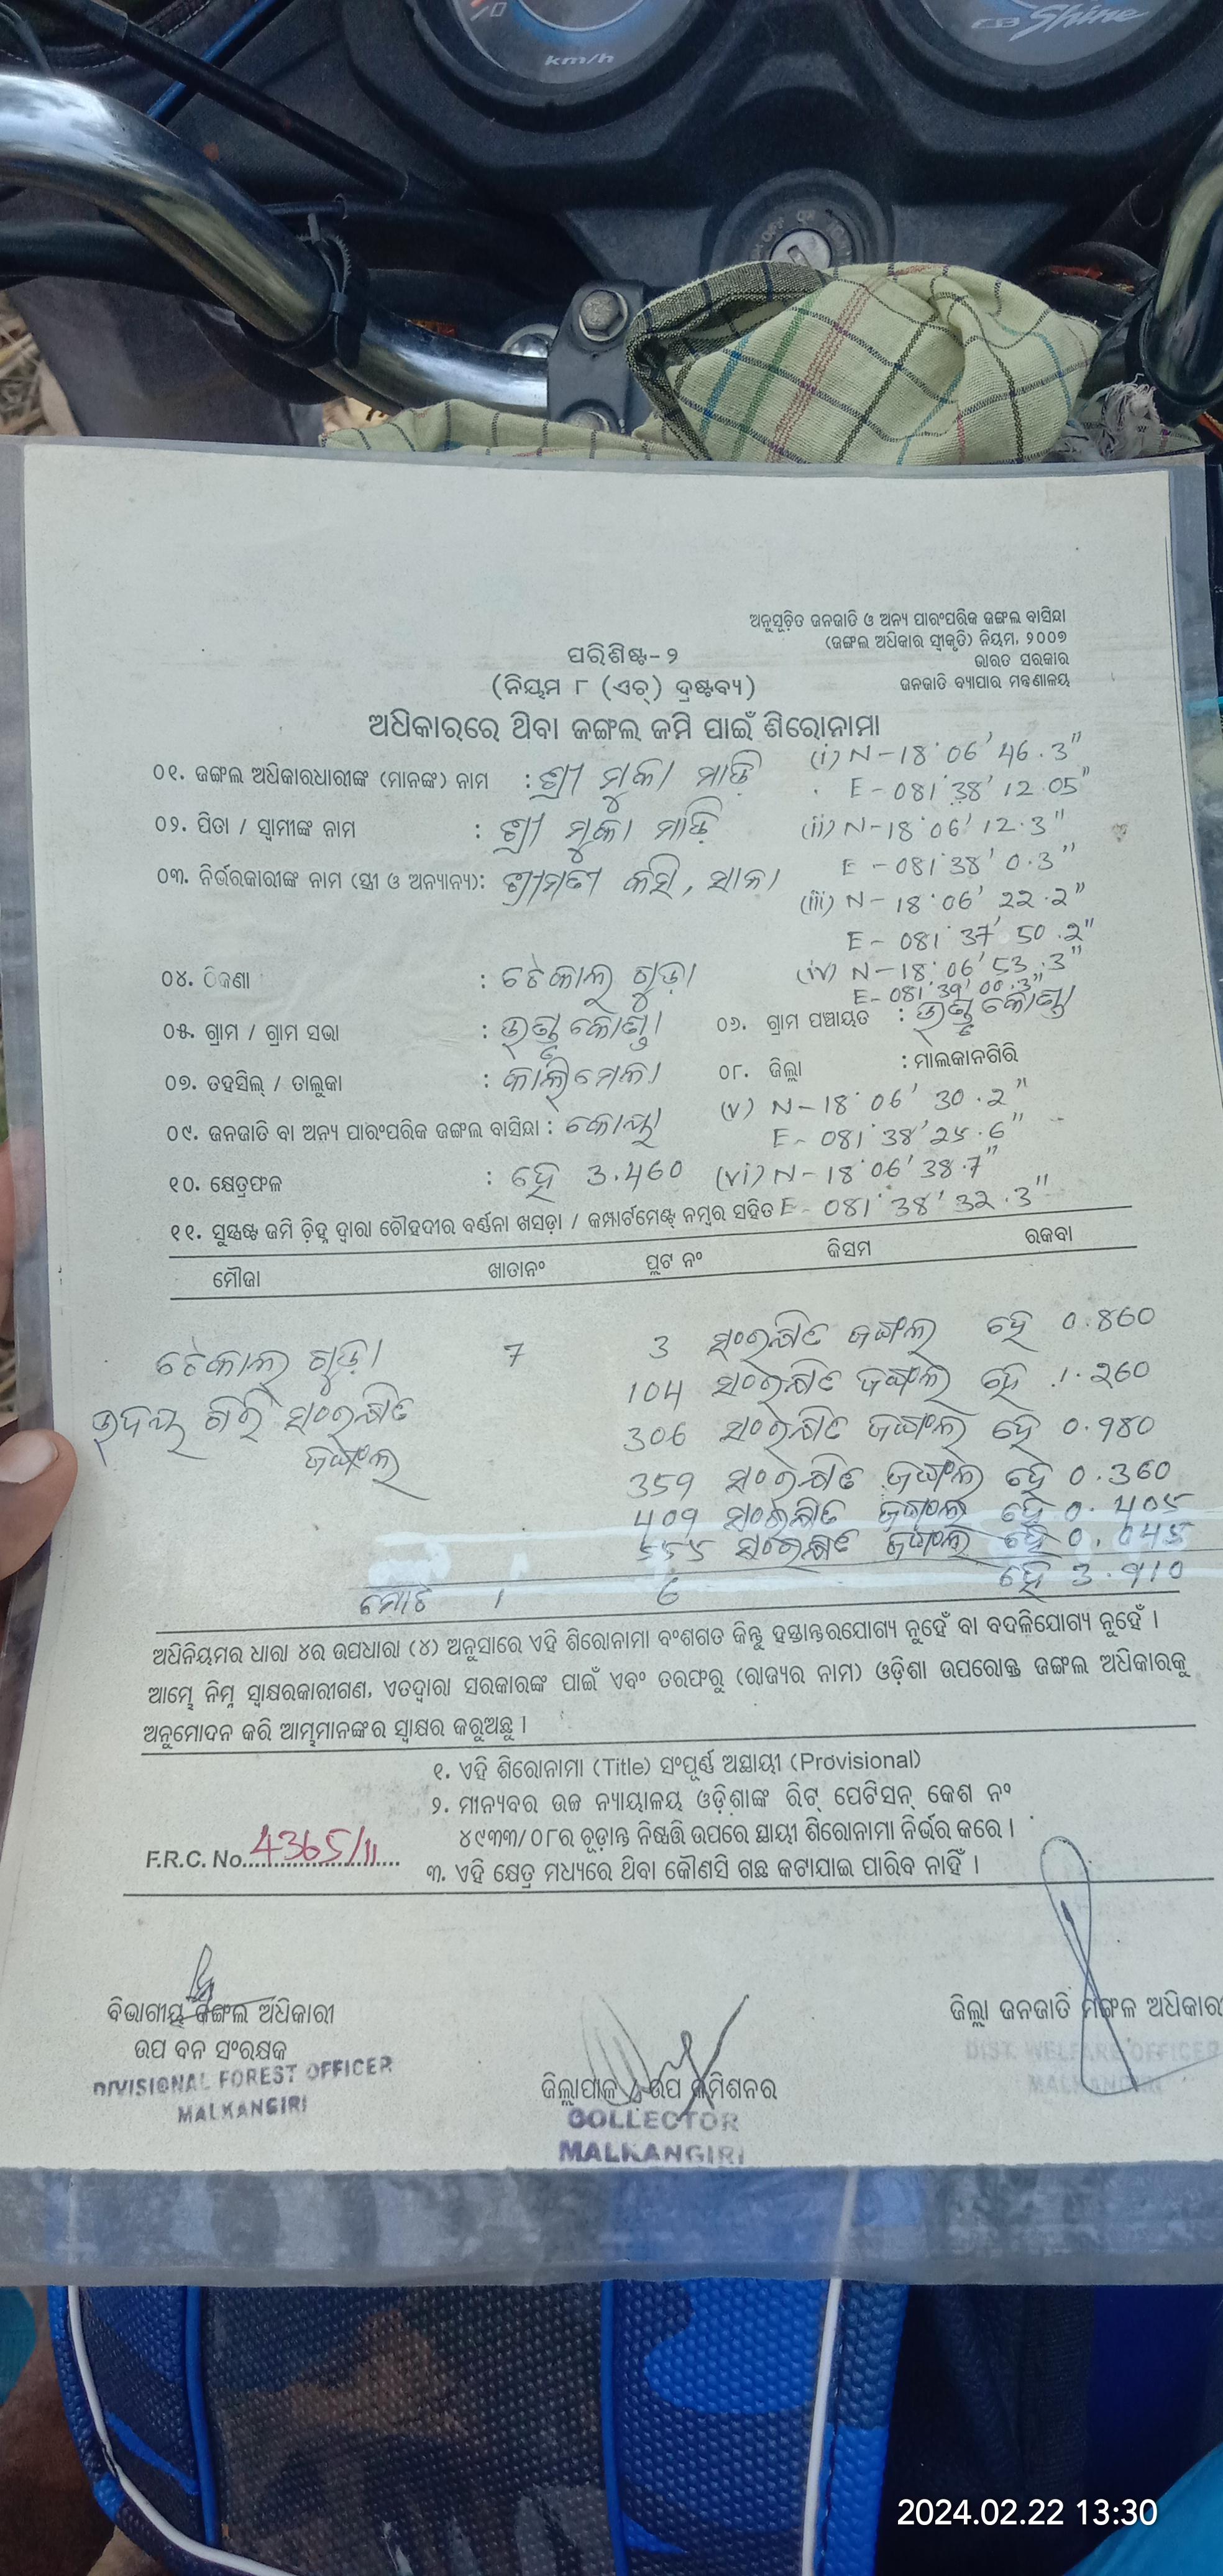 km/h
CB Shine
ଅନୁସୂଚିତ ଜନଜାତି ଓ ଅନ୍ୟ ପାରଂପରିକ ଜଙ୍ଗଲ ବାସିନ୍ଦା
(ଜଙ୍ଗଲ ଅଧିକାର ସ୍ୱୀକୃତି) ନିୟମ, ୨୦୦୭
ଭାରତ ସରକାର
ଜନଜାତି ବ୍ୟାପାର ମନ୍ତ୍ରଣାଳୟ
ପରିଶିଷ୍ଟ-୨
(ନିୟମ ୮ (ଏଚ୍) ଦ୍ରଷ୍ଟବ୍ୟ)
ଅଧିକାରରେ ଥିବା ଜଙ୍ଗଲ ଜମି ପାଇଁ ଶିରୋନାମା
୦୧. ଜଙ୍ଗଲ ଅଧିକାରଧାରୀଙ୍କ (ମାନଙ୍କ) ନାମ : ଶ୍ରୀ ମୁକା ମାଡ଼ି (i) N-18°06'46.3"
E-081°38'12.05"
୦୨. ପିତା / ସ୍ୱାମୀଙ୍କ ନାମ : ଶ୍ରୀ ମୁକା ମାଡ଼ି (ii) N-18°06'12.3"
E-081°38'0.3"
୦୩. ନିର୍ଭରକାରୀଙ୍କ ନାମ (ସ୍ତ୍ରୀ ଓ ଅନ୍ୟାନ୍ୟ): ଶ୍ରୀମତୀ (iii) N-18°06'22.2"
E-081°37'50.2"
୦୪. ଠିକଣା : ଟେକାଲ ଗୁଡ଼ା (iv) N-18°06'53.3"
E-081°39'00.3"
୦୫. ଗ୍ରାମ / ଗ୍ରାମ ସଭା : ୦୬. ଗ୍ରାମ ପଞ୍ଚାୟତ :
୦୭. ତହସିଲ୍ / ତାଲୁକା : କାଲିମେଳା ୦୮. ଜିଲ୍ଲା : ମାଲକାନଗିରି
(v) N-18°06'30.2"
୦୯. ଜନଜାତି ବା ଅନ୍ୟ ପାରଂପରିକ ଜଙ୍ଗଲ ବାସିନ୍ଦା : କୋୟା E-081°38'25.6"
୧୦. କ୍ଷେତ୍ରଫଳ : ହେ 3.460 (vi) N-18°06'38.7"
୧୧. ସୁସ୍ପଷ୍ଟ ଜମି ଚିହ୍ନ ଦ୍ୱାରା ଚୌହଦୀର ବର୍ଣ୍ଣନା ଖସଡ଼ା / କମ୍ପାର୍ଟମେଣ୍ଟ ନମ୍ବର ସହିତ E-081°38'32.3"
ମୌଜା ଖାତାନଂ ପ୍ଲଟ ନଂ କିସମ ରକବା
ଟେକାଲ ଗୁଡ଼ା 7 3 ସଂରକ୍ଷିତ ଜଙ୍ଗଲ ହେ 0.860
104 ସଂରକ୍ଷିତ ଜଙ୍ଗଲ ହେ 1.260
ଉଦୟ ଗିରି ସଂରକ୍ଷିତ 306 ସଂରକ୍ଷିତ ଜଙ୍ଗଲ ହେ 0.980
ଜଙ୍ଗଲ 359 ସଂରକ୍ଷିତ ଜଙ୍ଗଲ ହେ 0.360
409 ସଂରକ୍ଷିତ ଜଙ୍ଗଲ ହେ 0.405
555 ସଂରକ୍ଷିତ ଜଙ୍ଗଲ ହେ 0.045
ମୋଟ 1 6 ହେ 3.910
ଅଧିନିୟମର ଧାରା ୪ର ଉପଧାରା (୪) ଅନୁସାରେ ଏହି ଶିରୋନାମା ବଂଶଗତ କିନ୍ତୁ ହସ୍ତାନ୍ତରଯୋଗ୍ୟ ନୁହେଁ ବା ବଦଳିଯୋଗ୍ୟ ନୁହେଁ ।
ଆମ୍ଭେ ନିମ୍ନ ସ୍ୱାକ୍ଷରକାରୀଗଣ, ଏତଦ୍ୱାରା ସରକାରଙ୍କ ପାଇଁ ଏବଂ ତରଫରୁ (ରାଜ୍ୟର ନାମ) ଓଡ଼ିଶା ଉପରୋକ୍ତ ଜଙ୍ଗଲ ଅଧିକାରକୁ
ଅନୁମୋଦନ କରି ଆମ୍ଭମାନଙ୍କର ସ୍ୱାକ୍ଷର କରୁଅଛୁ ।
୧. ଏହି ଶିରୋନାମା (Title) ସଂପୂର୍ଣ୍ଣ ଅସ୍ଥାୟୀ (Provisional)
୨. ମାନ୍ୟବର ଉଚ୍ଚ ନ୍ୟାୟାଳୟ ଓଡ଼ିଶାଙ୍କ ରିଟ୍ ପେଟିସନ୍ କେଶ ନଂ
୪୯୩୩/୦୮ର ଚୂଡ଼ାନ୍ତ ନିଷ୍ପତ୍ତି ଉପରେ ସ୍ଥାୟୀ ଶିରୋନାମା ନିର୍ଭର କରେ ।
F.R.C. No. 4365/11
୩. ଏହି କ୍ଷେତ୍ର ମଧ୍ୟରେ ଥିବା କୌଣସି ଗଛ କଟାଯାଇ ପାରିବ ନାହିଁ ।
ବିଭାଗୀୟ ଜଙ୍ଗଲ ଅଧିକାରୀ
ଉପ ବନ ସଂରକ୍ଷକ
DIVISIONAL FOREST OFFICER
MALKANGIRI
ଜିଲ୍ଲାପାଳ / ଉପ କମିଶନର
COLLECTOR
MALKANGIRI
ଜିଲ୍ଲା ଜନଜାତି ମଙ୍ଗଳ ଅଧିକାର
DIST. WELFARE OFFICER
MALKANGIRI
2024.02.22 13:30